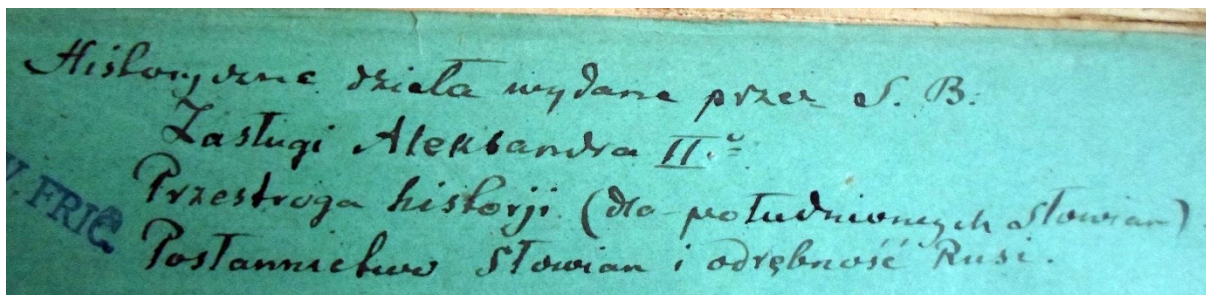 Historyczne dzieła wydane przez S. B.
Zasługi Aleksandra II.
Przestroga historji (dla południowych Słowian)
V. FRIČ
Posłannictwo Słowian i odrębność Rusi.